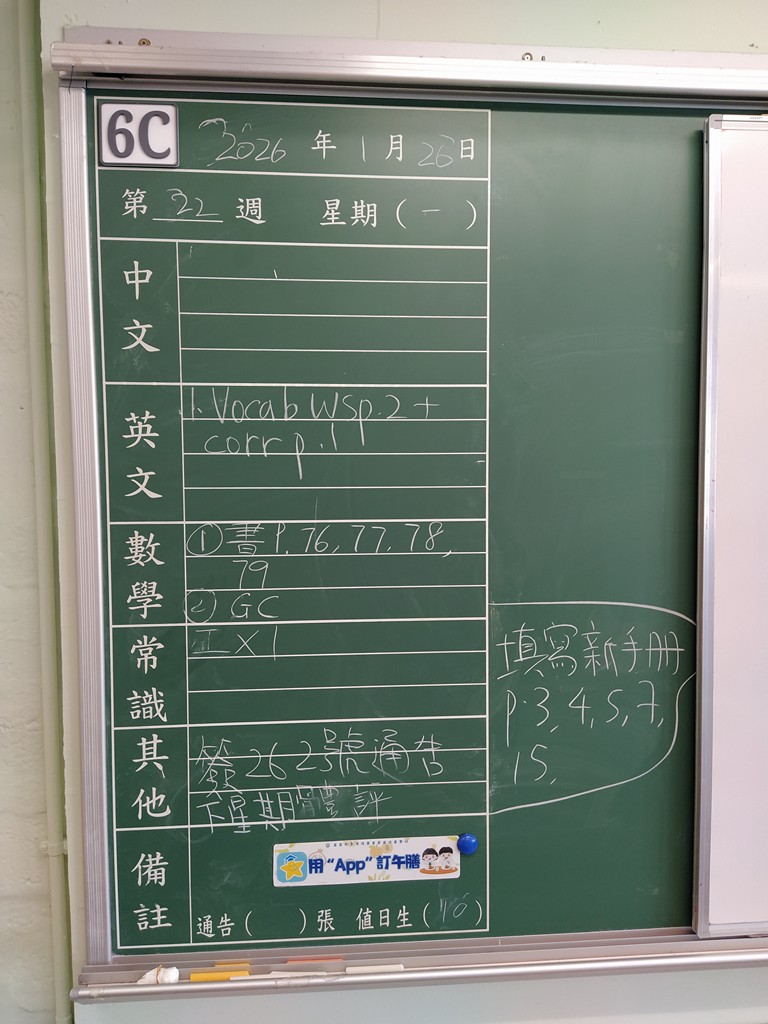 6C 2026 年 1 月 26 日
第 22 週 星期 ( 一 )
中文
英文
1. Vocab WS p.2 +
corr p.1
數學
① 書 P. 76, 77, 78,
79
② GC
常識
工 X 1
其他
簽 262 號通告
下星期體評
填寫新手冊
p.3, 4, 5, 7,
15.
備註
用 “App” 訂午膳
通告 ( ) 張 值日生 ( 10 )